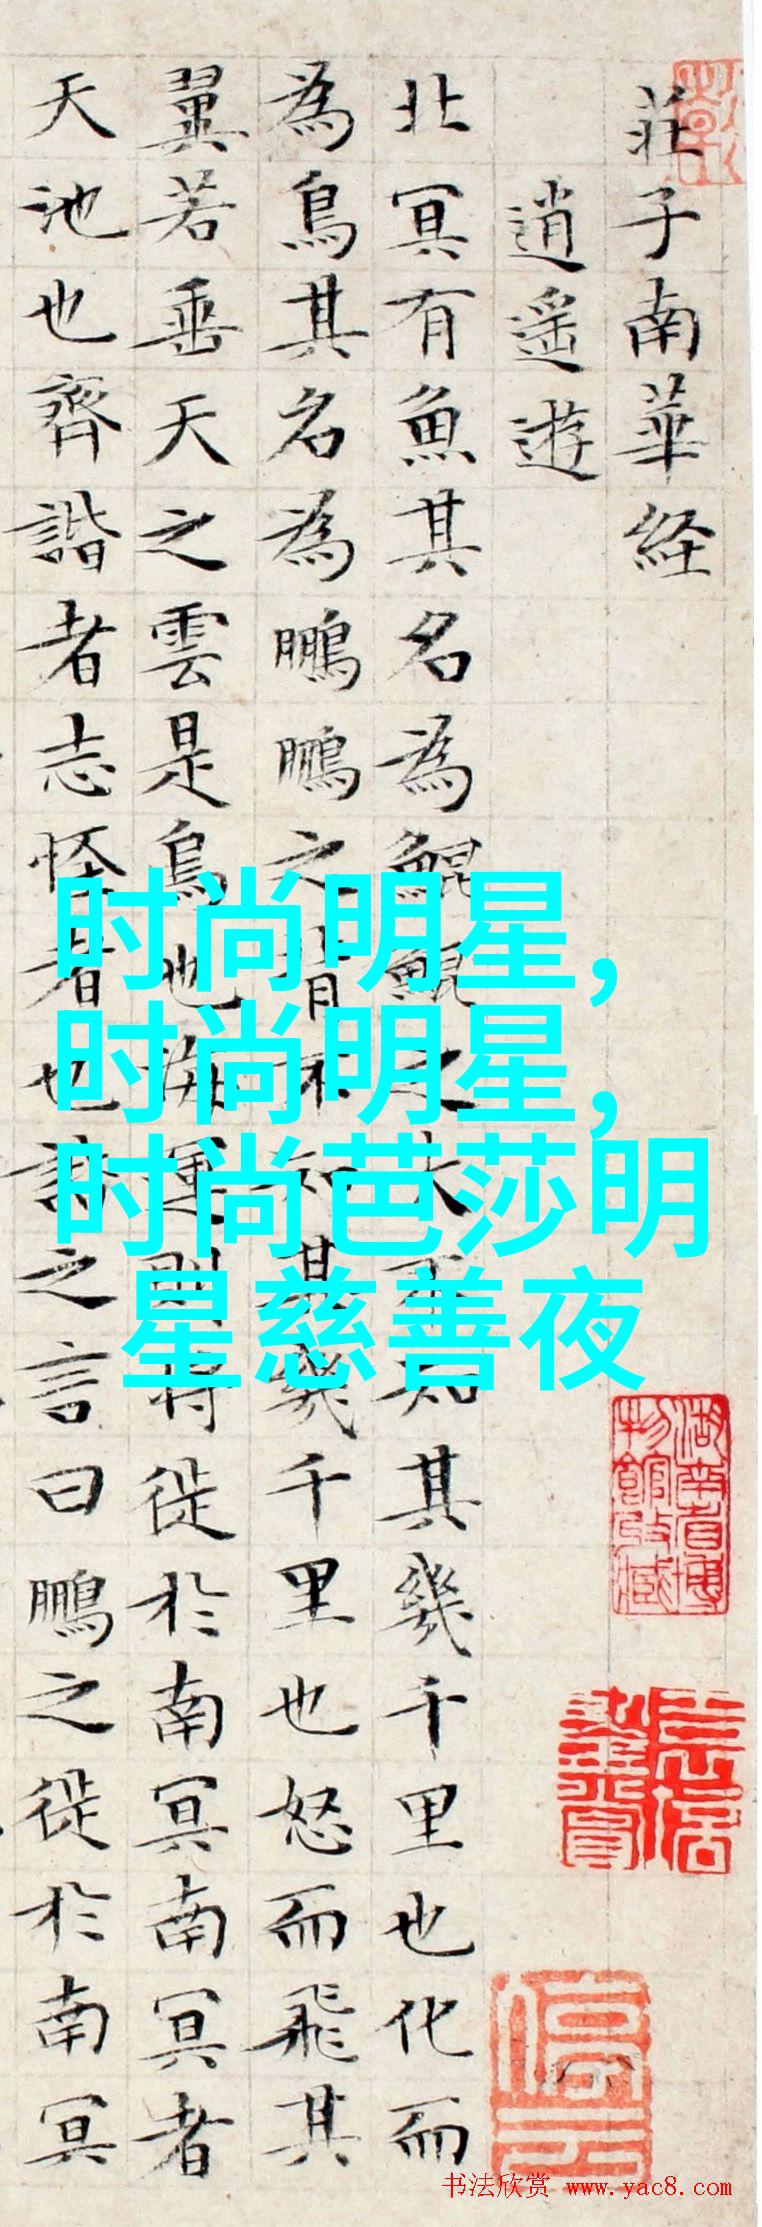 莊子南華経
逍遥遊
北冥有魚其名為鯤鯤之大不知其幾千里也化而
為鳥其名為鵬鵬之背不知其幾千里也怒而飛其
翼若垂天之雲是鳥也海運則将徙於南冥南冥者
天池也齊諧者志怪者也諧之言曰鵬之徙於南冥
时尚明星,
时尚明星,
时尚芭莎明
星慈善夜
湖南省博
物館收藏
书法欣赏 www.yac8.com